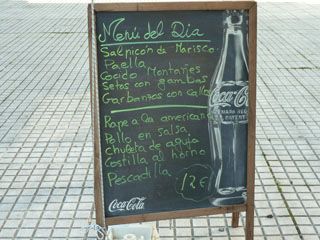 Menú del Dia
Salpicón de Marisco.
Paella
Cocido Montañes
Setas con gambas
Garbanzos con callos
Rape a la americana
Pollo en salsa
Chuleta de aguja
Costilla al horno
Pescadilla
12€
Coca-Cola
Coca-Cola